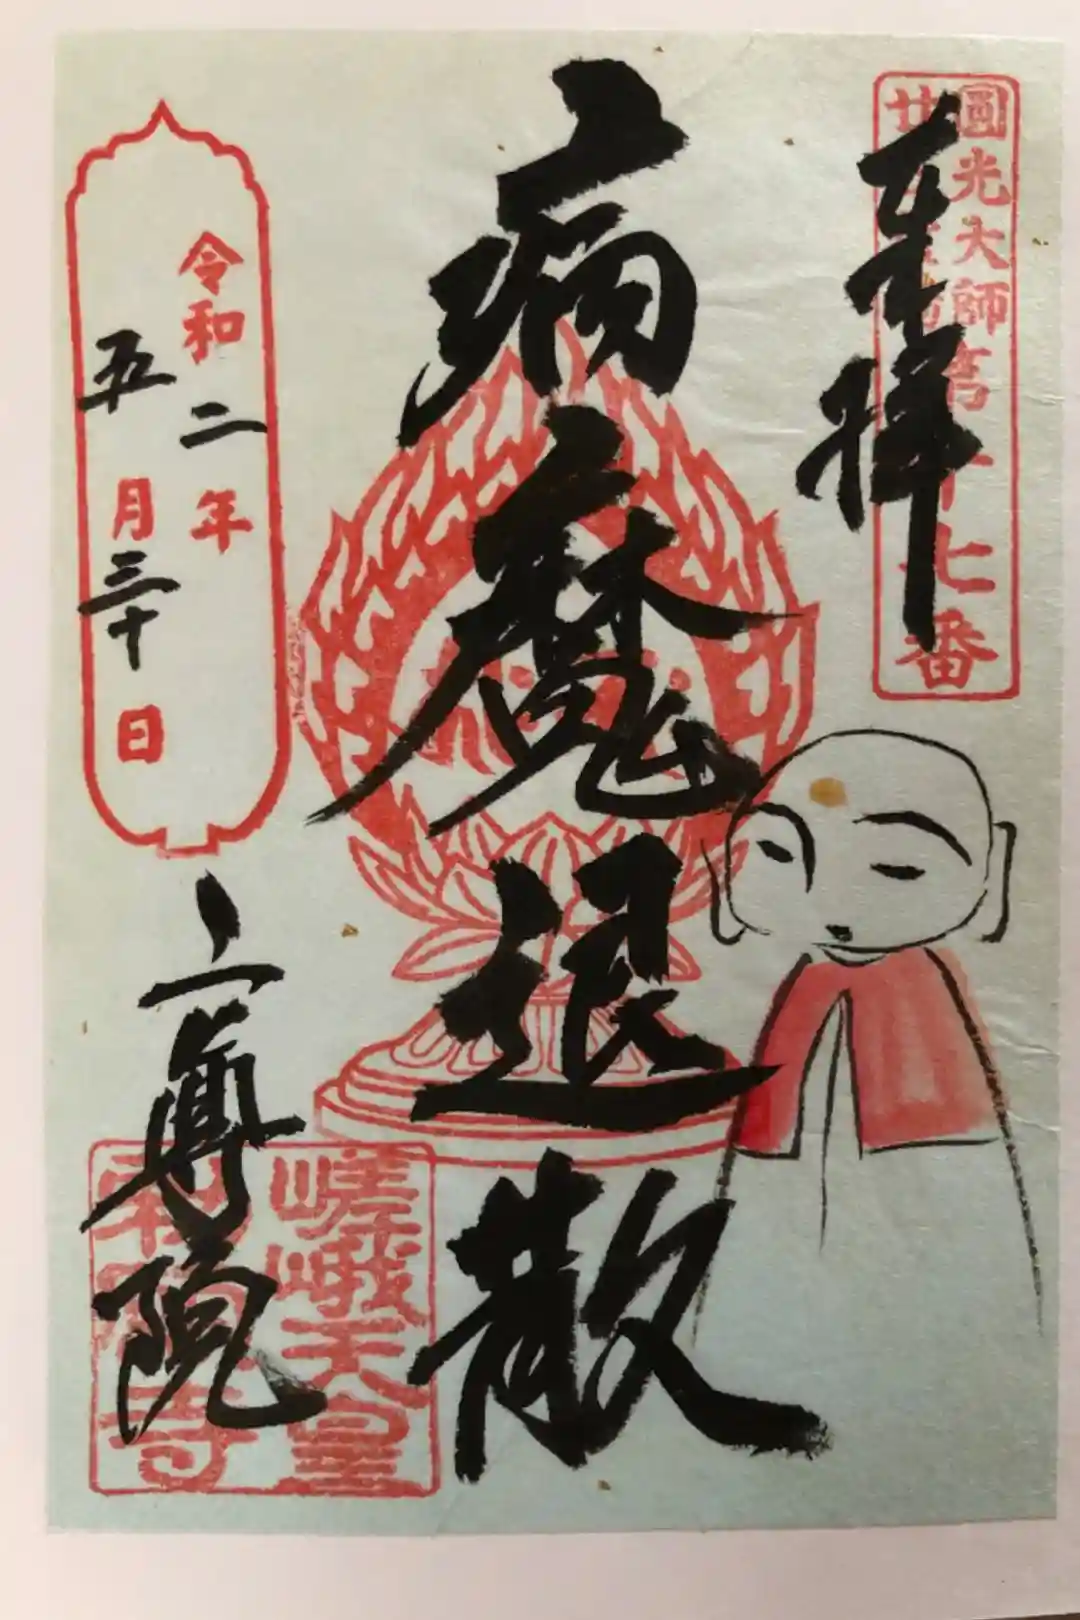 圓光大師
十七番
奉拝
病魔退散
令和二年
五月三十日
二尊院
嵯峨天皇
勅願寺